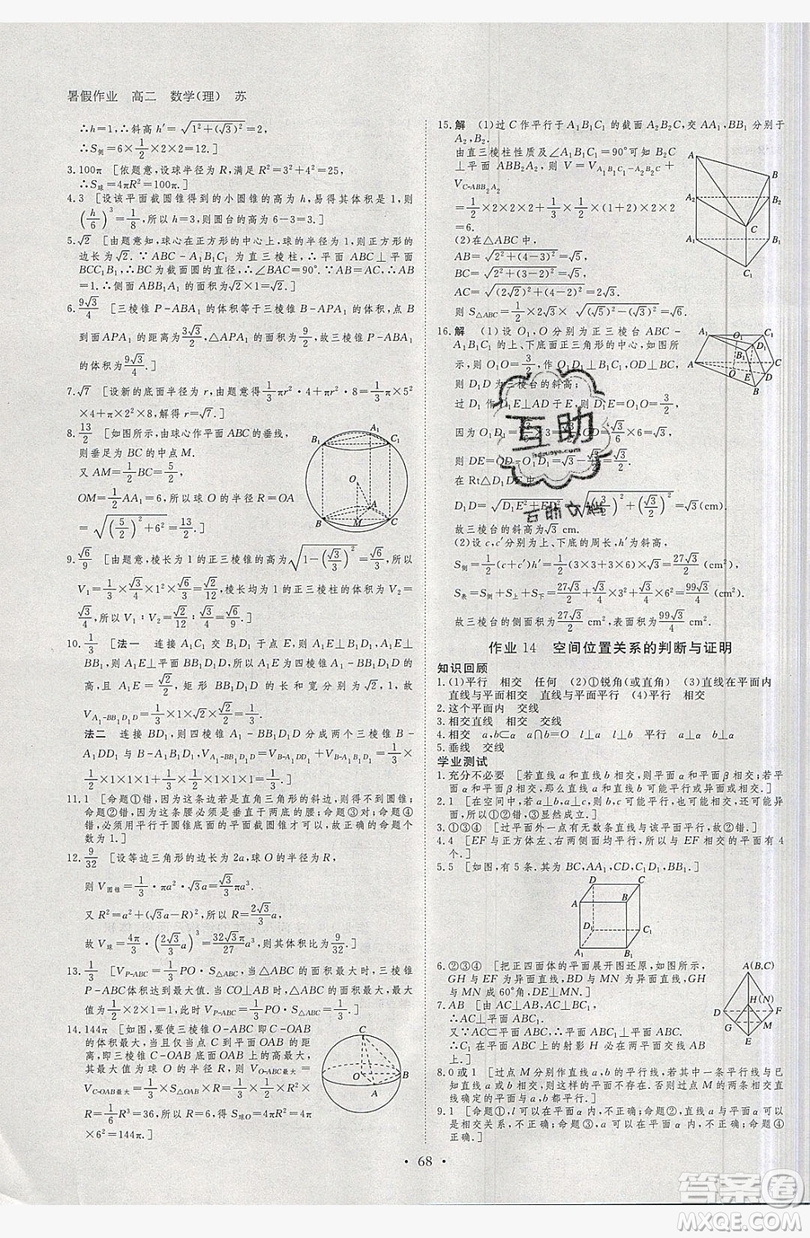 暑假作业 高二 数学(理) 苏
∴h=1,∴斜高 h′=√(1²+(√3)²)=2,
∴S侧=6×1/2×2×2=12.]
3.100π [依题意,设球半径为R,满足R²=3²+4²=25,
∴S球=4πR²=100π.]
4.3 [设该平面截圆锥得到的小圆锥的高为h,易得其体积是1,则
(h/6)³=1/8,所以h=3,圆台的高为6−3=3.]
5.√2 [由题意,球心在正方形的中心上,球的半径为1,则正方形的边
长为√2. ∵三棱柱ABC-A₁B₁C₁为直三棱柱,∴平面ABC⊥平面
BCC₁B₁,∴BC为截面圆的直径,∴∠BAC=90°.∵AB=AC,∴AB
=1.]
6.9√3/4 [三棱锥P-ABA₁的体积等于三棱锥B-APA₁的体积,点B
到面APA₁的距离为3√3/2,△APA₁的面积为9/2,故三棱锥P-ABA₁
的体积为9√3/4.]
7.√7 [设新的底面半径为r,则有1/3πr²·4+πr²·8=1/3π×5²
×4+π×2²×8,解得r=√7.]
8.13/2 [如图,由球心作平面ABC的垂线,
则垂足为BC的中点M.
又AM=1/2BC=5/2,
OM=1/2AA₁=6,所以球O的半径R=OA=
√((5/2)²+6²)=13/2.]
9.√6/9 [由题意,棱长均为1的正三棱锥的高为√(1−(√3/3)²)=√6/3,所
以V₁=1/3×√3/4×√6/3=√2/12,棱长均为1的正三棱柱的体积为V₂=√3/4
×1=√3/4,所以V₁∶V₂=√2/12∶√3/4=√6/9.]
10.1/3 [法一 连接A₁C₁交B₁D₁于点E,则A₁E⊥B₁D₁,A₁E⊥
BB₁,则A₁E⊥平面BB₁D₁D,所以A₁E为四棱锥A₁-BB₁D₁D的
高,且A₁E=√2/2,矩形BB₁D₁D的长和宽分别为√2,1,故
V_{A₁-BB₁D₁D}=1/3×1×√2×√2/2=1/3.
法二 连接BD₁,则四棱锥A₁-BB₁D₁D分成两个三棱锥B-
A₁DD₁与B-A₁B₁D₁,V_{A₁-BB₁D₁D}=V_{B-A₁DD₁}+V_{B-A₁B₁D₁}=1/3×
1/2×1×1×1+1/3×1/2×1×1×1=1/3.]
11.1 [命题①错,因为这条边若是直角三角形的斜边,则得不到圆锥;
命题②错,因为这条腰必须是垂直于两底的腰;命题③对;命题④
错,必须用平行于圆锥底面的平面截圆锥才可以.故正确的命题个数
为1.]
12.9/32 [设等边三角形的边长为2a,球O的半径为R,
则V圆锥=1/3·πa²·√3a=√3/3πa³.
又R²=a²+(√3a−R)²,所以R=2√3/3a,
故V球=4π/3·(2√3/3a)³=32√3π/27a³,则其体积比为9/32.]
13.1/3 [V_{P-ABC}=1/3PO·S△ABC,当△ABC的面积最大时,三棱锥
P-ABC体积达到最大值.当CO⊥AB时,△ABC的面积最大,最大
值为1/2×2×1=1,此时V_{P-ABC}=1/3PO·S△ABC=1/3.]
14.144π [如图,要使三棱锥O-ABC即C-OAB
的体积最大,当且仅当点C到平面OAB的距
离,即三棱锥C-OAB底面OAB上的高最大,
其最大值为球O的半径R,则V_{O-ABC}最大=
V_{C-OAB}最大=1/3×S△OAB×R=1/3×1/2×R²
×R=1/6R³=36,所以R=6,得S球O=4πR²=4π
×6²=144π.]
15.解 (1)过C作平行于A₁B₁C₁的截面A₂B₂C,交AA₁,BB₁分别于
A₂,B₂.
由直三棱柱性质及∠A₁B₁C₁=90°可知B₂C⊥
平面ABB₂A₂.则V=V_{A₁B₁C₁-A₂B₂C}+
V_{C-ABB₂A₂}
=1/2×2×2×2+1/3×1/2×(1+2)×2×2
=6.
(2)在△ABC中,
AB=√(2²+(4−3)²)=√5,
BC=√(2²+(3−2)²)=√5,
AC=√((2√2)²+(4−2)²)=2√3.
则S△ABC=1/2×2√3×√((√5)²−(√3)²)=√6.
16.解 (1)设O₁,O分别为正三棱台ABC-
A₁B₁C₁的上、下底面正三角形的中心,如图
所示,则O₁O=3/2,过O₁作O₁D₁⊥B₁C₁,OD⊥BC,
则D₁D为三棱台的斜高;
过D₁作D₁E⊥AD于E,则D₁E=O₁O=3/2,
因为O₁D₁=√3/6×3=√3/2,OD=√3/6×6=√3,
则DE=OD−O₁D₁=√3−√3/2=√3/2.
在Rt△D₁DE中,
D₁D=√(D₁E²+ED²)=√((3/2)²+(√3/2)²)=√3(cm).
故三棱台的斜高为√3 cm.
(2)设c,c′分别为上、下底的周长,h′为斜高,
S侧=1/2(c+c′)h′=1/2(3×3+3×6)×√3=27√3/2(cm²),
S表=S侧+S上+S下=27√3/2+√3/4×3²+√3/4×6²=99√3/4(cm²).
故三棱台的侧面积为27√3/2 cm²,表面积为99√3/4 cm².
作业 14 空间位置关系的判断与证明
知识回顾
1.(1)平行 相交 任何 (2)①锐角(或直角) ③直线在平面内
直线与平面平行 直线与平面相交 (4)平行 相交
2.这个平面内 交线
3.相交直线 相交 交线
4.相交 a,b⊂α a∩b=O l⊥a l⊥b 平行 a⊥α b⊥α
5.垂线 交线
学业测试
1.充分不必要 [若直线a和直线b相交,则平面α和平面β相交;若平
面α和平面β相交,那么直线a和直线b可能平行或异面或相交.]
2.1 [在空间中,若直线垂直,不一定相交,故①③错误,②显然成立.]
3.①③④ [过平面外一点有无数条直线与该平面平行,故②错.]
4.4 [EF与正方体左、右两侧面均平行,所以与EF相交的平面有4
个.]
5.5 [如图,有5条.其中BC,AA₁,CD,C₁D₁,BB₁.]
6.②③④ [把正四面体的平面展开图还原,如图所
示,GH与EF为异面直线,BD与MN为异面直线,GH
与MN成60°角,DE⊥MN.]
7.AB [由AC⊥AB,AC⊥BC₁,
∴AC⊥平面ABC₁.
又∵AC⊂平面ABC,∴平面ABC₁⊥平面ABC.
∴C₁在平面ABC上的射影H必在两平面交线
AB上.]
8.0或1 [过点M分别作直线a、直线b的平行线,若其中一条平行线与
已知直线a或b相交,则这样的平面不存在.否则过点M的两条相交
直线确定的平面与a、b都平行.]
9.1 [命题①l可以在平面α内,是假命题;命题②直线a与平面α可以
是相交关系,是假命题;命题③a可以在平面α内,是假命题;命题④
68
互助
百助文档
答案圈
MXQE.COM